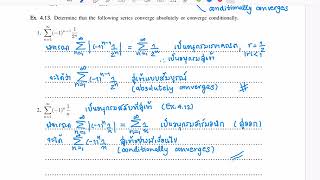 conditionally converges
Ex. 4.13. Determine that the following series converge absolutely or converge conditionally.
1. ∑_{n=1}^{∞} (-1)^{n-1} 1/2^n
พิจารณา ∑_{n=1}^{∞} |(-1)^{n-1} 1/2^n| = ∑_{n=1}^{∞} 1/2^n เป็นอนุกรมเรขาคณิต, r = 1/2
|r| < 1
∴ เป็นอนุกรมลู่เข้า
จะได้ว่า ∑_{n=1}^{∞} (-1)^{n-1} 1/2^n ลู่เข้าแบบสัมบูรณ์
(absolutely converges)
2. ∑_{n=1}^{∞} (-1)^n 1/n เป็นอนุกรมสลับที่ลู่เข้า (Ex. 4.12)
พิจารณา ∑_{n=1}^{∞} |(-1)^n 1/n| = ∑_{n=1}^{∞} 1/n เป็นอนุกรมฮาร์มอนิก (ลู่ออก)
จะได้ ∑_{n=1}^{∞} (-1)^n 1/n ลู่เข้าอย่างมีเงื่อนไข
(conditionally converges)